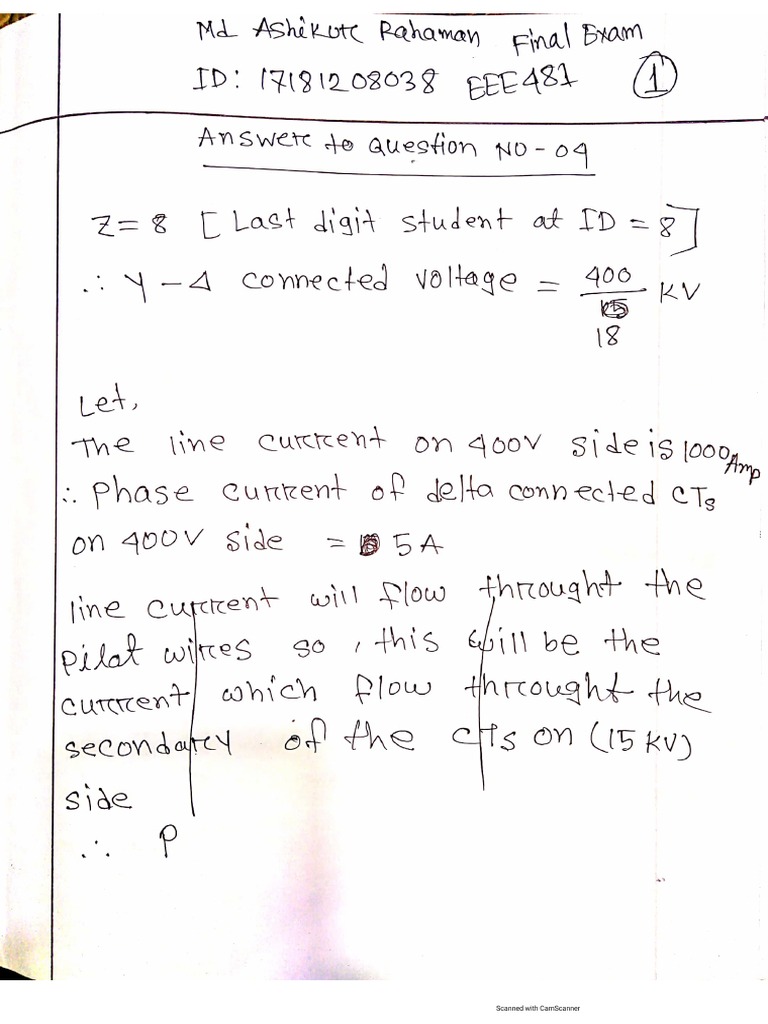 Md Ashikur Rahaman Final Exam
ID: 17181208038 EEE481 1
Answer to Question NO - 04
Z = 8 [Last digit student at ID = 8]
∴ Y - Δ connected voltage = 400/18 KV
Let,
The line current on 400V side is 1000 Amp
∴ Phase current of delta connected CTs
on 400V side = 5A
line current will flow throught the
pilot wires so, this will be the
current which flow throught the
secondary of the CTs on (15 KV)
side
∴ P
Scanned with CamScanner